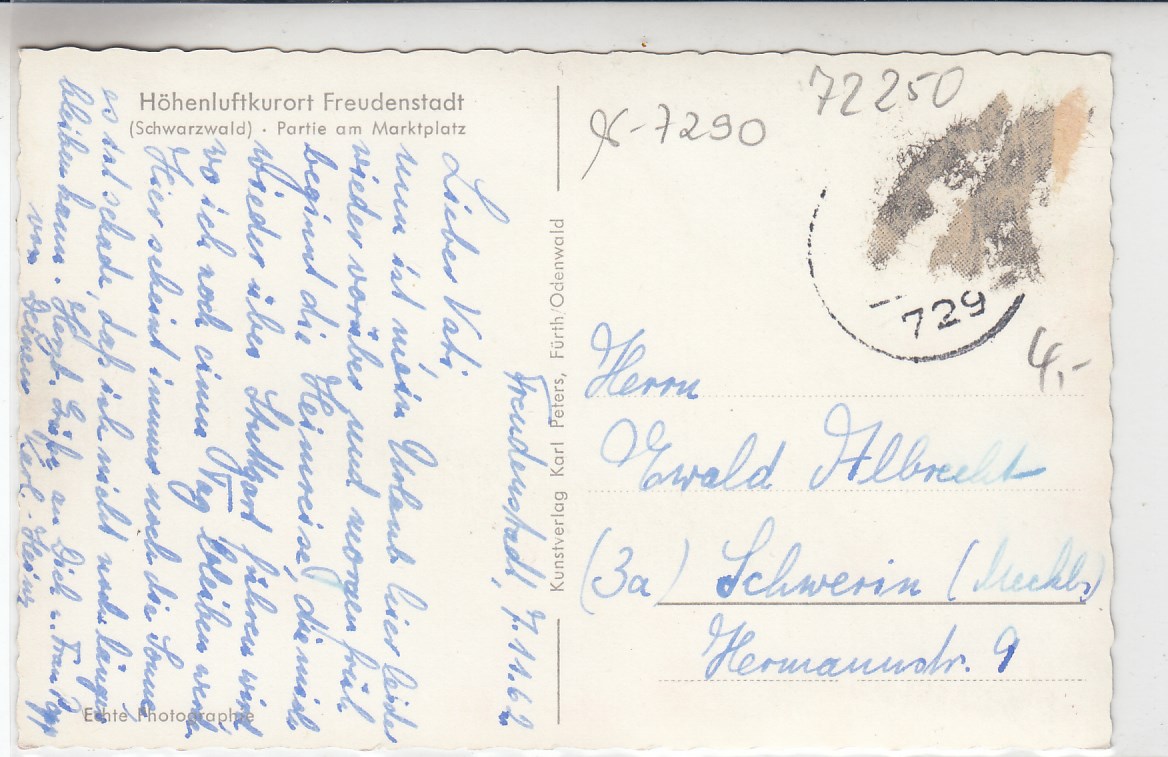 Höhenluftkurort Freudenstadt
(Schwarzwald) · Partie am Marktplatz
Freudenstadt, 7.11.62
Lieber Vati,
nun ist mein Urlaub hier leider
wieder vorüber und morgen früh
beginnt die Heimreise, die mich
wieder über Stuttgart führen wird
wo ich noch einen Tag bleiben werde
Hier scheint immer noch die Sonne
es ist schade, daß ich nicht noch länger
bleiben kann. Herzl. Grüße an Dich u. Frau
von Deinem Karl-Heinz
Echte Photographie
Kunstverlag Karl Peters, Fürth/Odenwald
-7290
72250
729
4,-
Herrn
Ewald Albrecht
(3a) Schwerin (Mecklb)
Hermannstr. 9